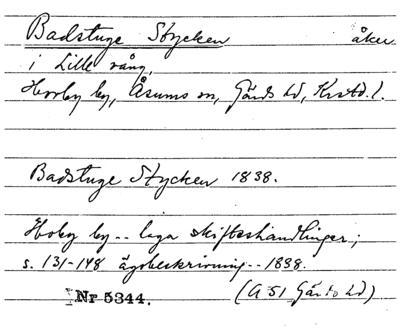 Badstuge Stycken åker
i Lille vång,
Hovby by, Åsums sn, Gärds hd, Krstd. l.
Badstuge Stycken 1838.
Hoby by -- laga skifteshandlingar;
s. 131-148 ägobeskrivning -- 1838.
Nr 5344. (A 51 Gärds hd)